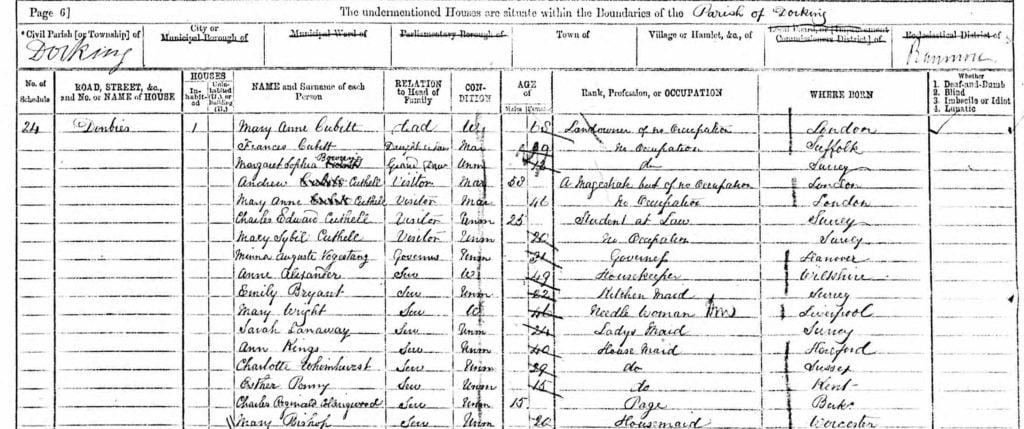 Page 6] The undermentioned Houses are situate within the Boundaries of the Parish of Dorking
*Civil Parish [or Township] of City or Municipal Borough of Municipal Ward of Parliamentary Borough of Town of Village or Hamlet, &c., of Local Board, or [Improvement Commissioners District] of Ecclesiastical District of
Dorking Ranmore
No. of Schedule ROAD, STREET, &c., and No. or NAME of HOUSE HOUSES Inhabited Uninhabited (U.), or Building (B.) NAME and Surname of each Person RELATION to Head of Family CONDITION AGE of Males Females Rank, Profession, or OCCUPATION WHERE BORN Whether 1. Deaf-and-Dumb 2. Blind 3. Imbecile or Idiot 4. Lunatic
24 Denbies 1 Mary Anne Cubitt Head W 68 Landowner of no Occupation London
Frances Cubitt Daughter in law Mar 39 no Occupation Suffolk
Margaret Sophia Grand Daur Unm do Surrey
Andrew Cuthell Visitor Mar 58 A Magestrate but of no Occupation London
Mary Anne Cuthell Visitor Mar 46 no Occupation London
Charles Edward Cuthell Visitor Unm 25 Student at Law Surrey
Mary Sybil Cuthell Visitor Unm 20 no Occupation Surrey
Minna Auguste Vogestang Governess Unm 31 Governess Hanover
Anne Alexander Ser W 49 Housekeeper Wilkshire
Emily Bryant Ser Unm 22 Kitchen Maid Surrey
Mary Wright Ser W 46 Needle Woman Liverpool
Sarah Lanaway Ser Unm 24 Ladys Maid Surrey
Ann Kings Ser Unm 40 House Maid Hereford
Charlotte Whimhurst Ser Unm 29 do Sussex
Esther Penny Ser Unm 15 do Kent
Charles Reginald Ser Unm 15 Page Berks
Mary Bishop Ser Unm 20 Housemaid Worcester